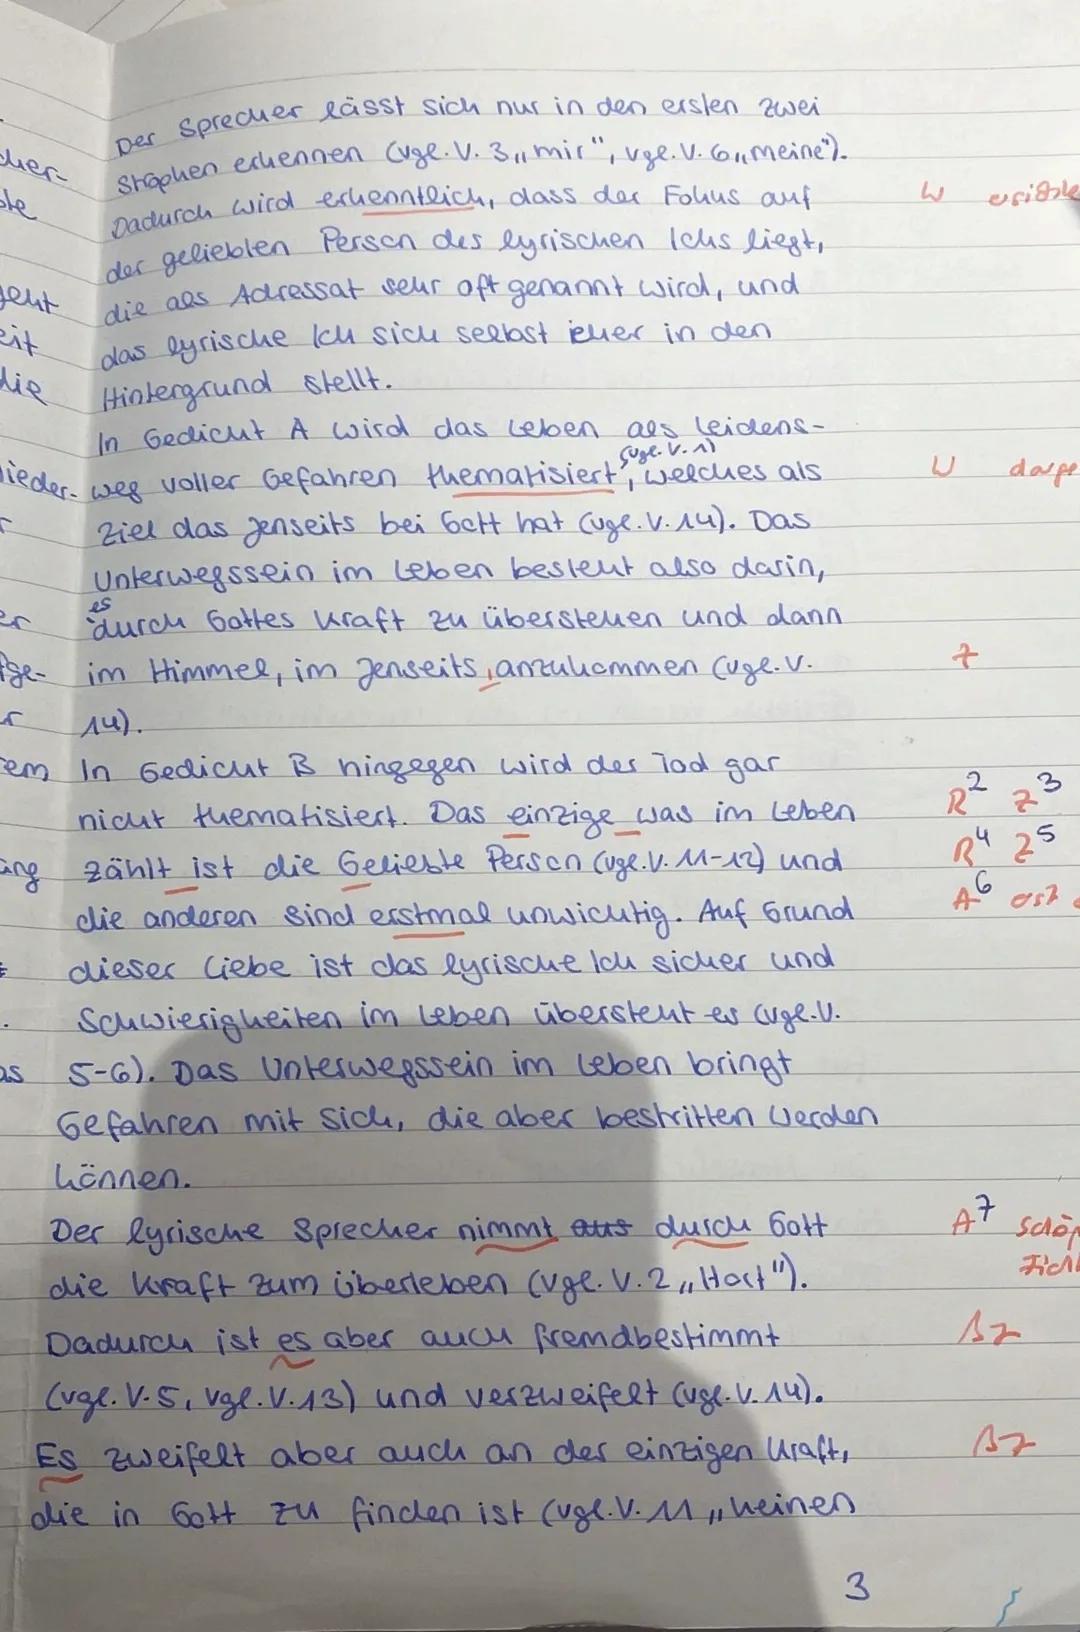 Der Sprecher lässt sich nur in den ersten zwei
Strophen erkennen (vgl. V. 3 „mir", vgl. V. 6 „meine").
Dadurch wird erkenntlich, dass der Fokus auf W
der geliebten Person des lyrischen Ichs liegt,
die als Adressat sehr oft genannt wird, und
das lyrische Ich sich selbst eher in den
Hintergrund stellt.
In Gedicht A wird das Leben als Leidens-
(vgl. V. 1)
weg voller Gefahren thematisiert, welches als W
Ziel das Jenseits bei Gott hat (vgl. V. 14). Das
Unterwegssein im Leben besteht also darin,
es
durch Gottes Kraft zu überstehen und dann
im Himmel, im Jenseits, anzukommen (vgl. V. 7
14).
In Gedicht B hingegen wird der Tod gar
nicht thematisiert. Das einzige was im Leben R2 Z3
zählt ist die Geliebte Person (vgl. V. 11-12) und R4 Z5
die anderen sind erstmal unwichtig. Auf Grund A6
dieser Liebe ist das lyrische Ich sicher und
Schwierigkeiten im Leben übersteht es (vgl. V.
5-6). Das Unterwegssein im Leben bringt
Gefahren mit sich, die aber bestritten werden
können.
Der lyrische Sprecher nimmt aus durch Gott A7
die Kraft zum überleben (vgl. V. 2 „Hort").
Dadurch ist es aber auch fremdbestimmt Bz
(vgl. V. 5, vgl. V. 13) und verzweifelt (vgl. V. 14).
Es zweifelt aber auch an der einzigen Kraft, Bz
die in Gott zu finden ist (vgl. V. 11 „keinen
3